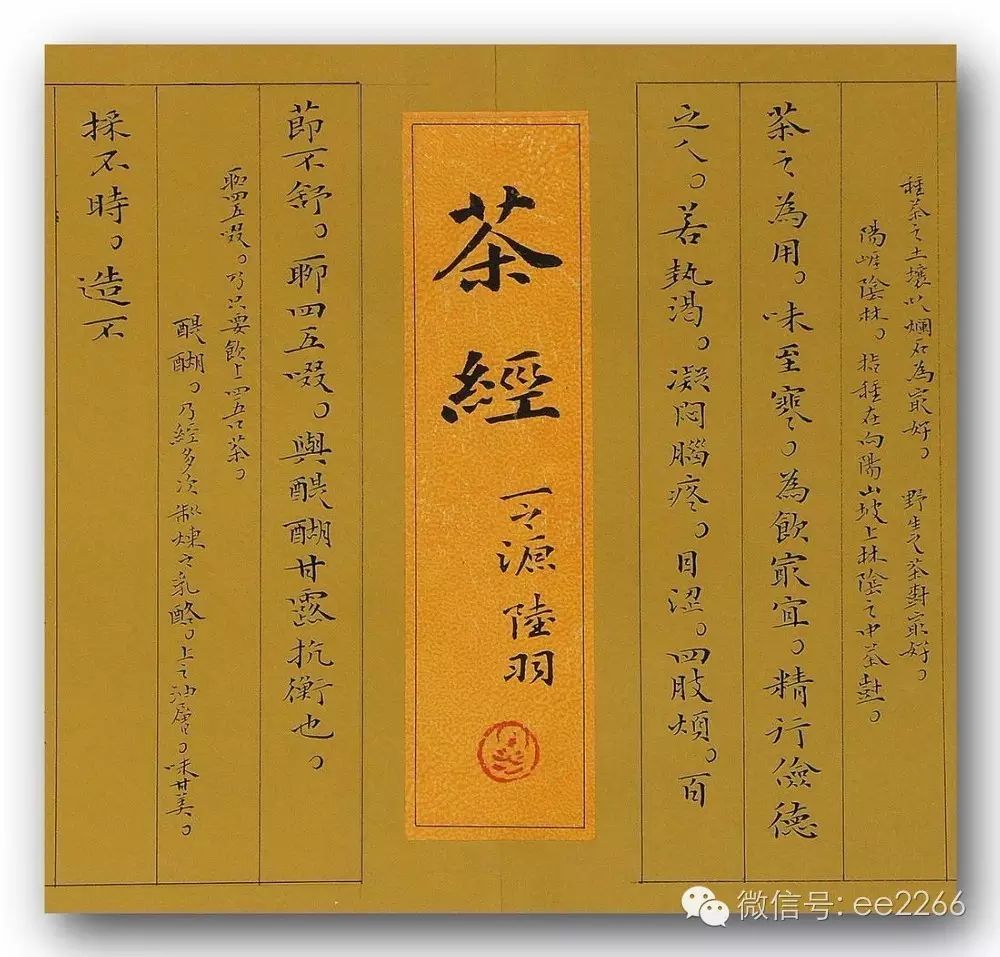 種茶之土壤以爛石為最好。野生之茶樹最好。
陽崖陰林。指種在向陽山坡上林陰之中茶樹。
茶之為用。味至寒。為飲最宜。精行儉德
之人。若熱渴。凝悶腦疼。目澀。四肢煩。百
茶經
一之源 陸羽
節不舒。聊四五啜。與醍醐甘露抗衡也。
聊四五啜。乃只要飲上四五口茶。
醍醐。乃經多次制煉之乳酪。上之油層。味甘美。
採不時。造不
微信号: ee2266